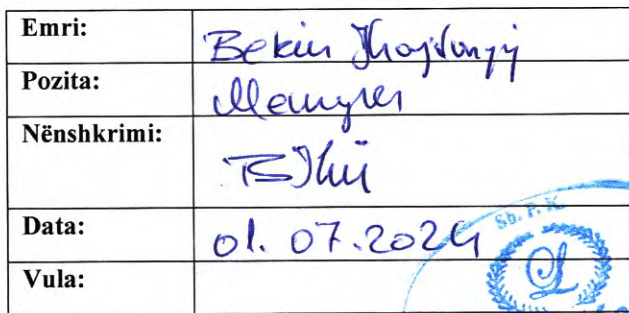 Emri: Bekim
Pozita: Menaxher
Nënshkrimi:
Data: 01.07.2024
Vula:
Sh. P. K